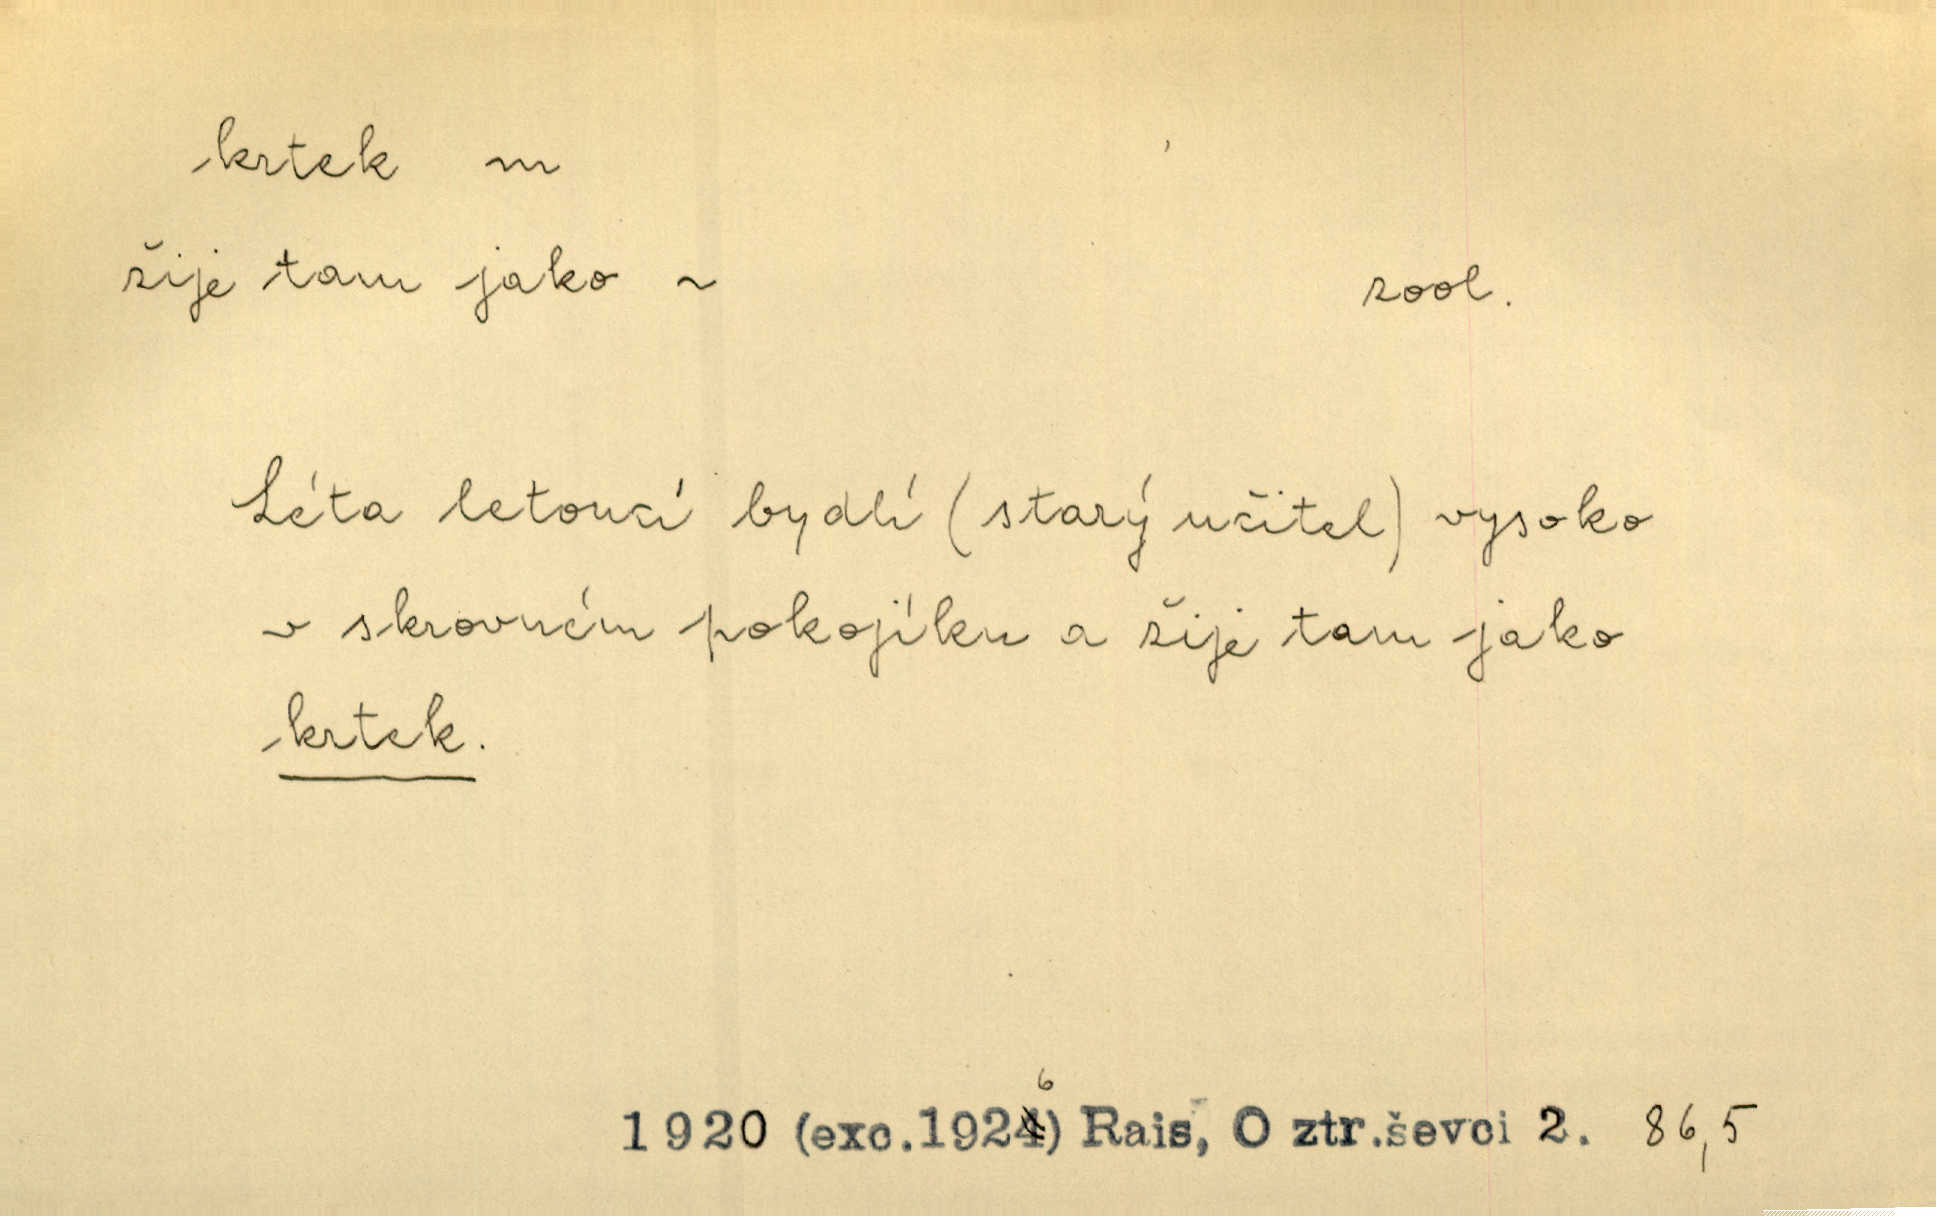 krtek m
žije tam jako ~ zool.
Léta letoucí bydlí (starý učitel) vysoko
v skrovném pokojíku a žije tam jako
krtek.
1920 (exc.1926) Rais, O ztr.ševci 2. 86,5